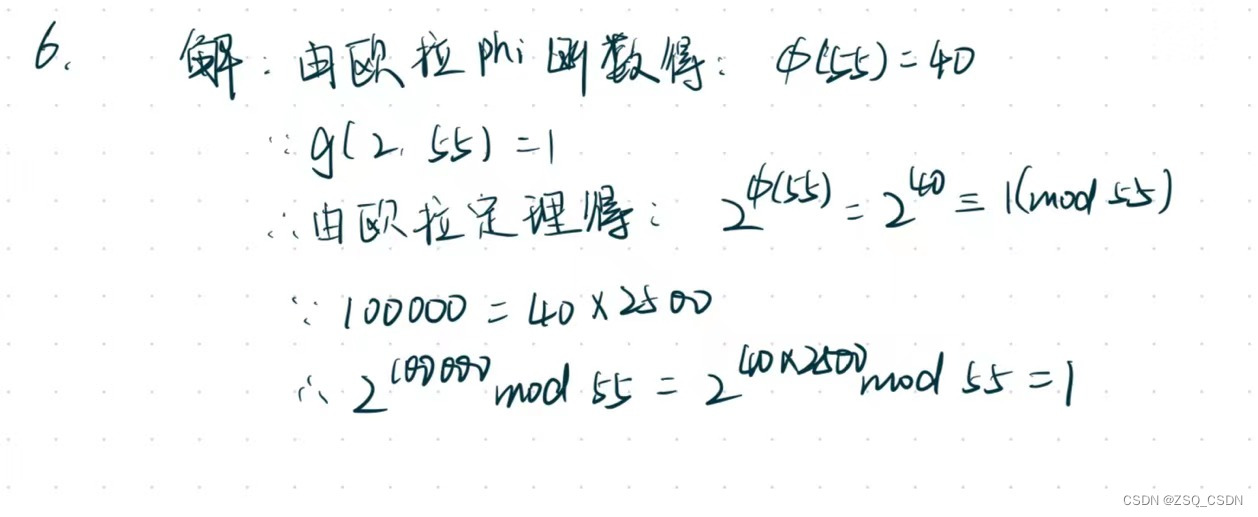 6. 解：由欧拉phi函数得：φ(55)=40
∵g(2,55)=1
∴由欧拉定理得：2^φ(55)=2^40≡1(mod 55)
∵100000=40×2500
∴2^100000 mod 55=2^40×2500 mod 55=1
CSDN @ZSQ_CSDN